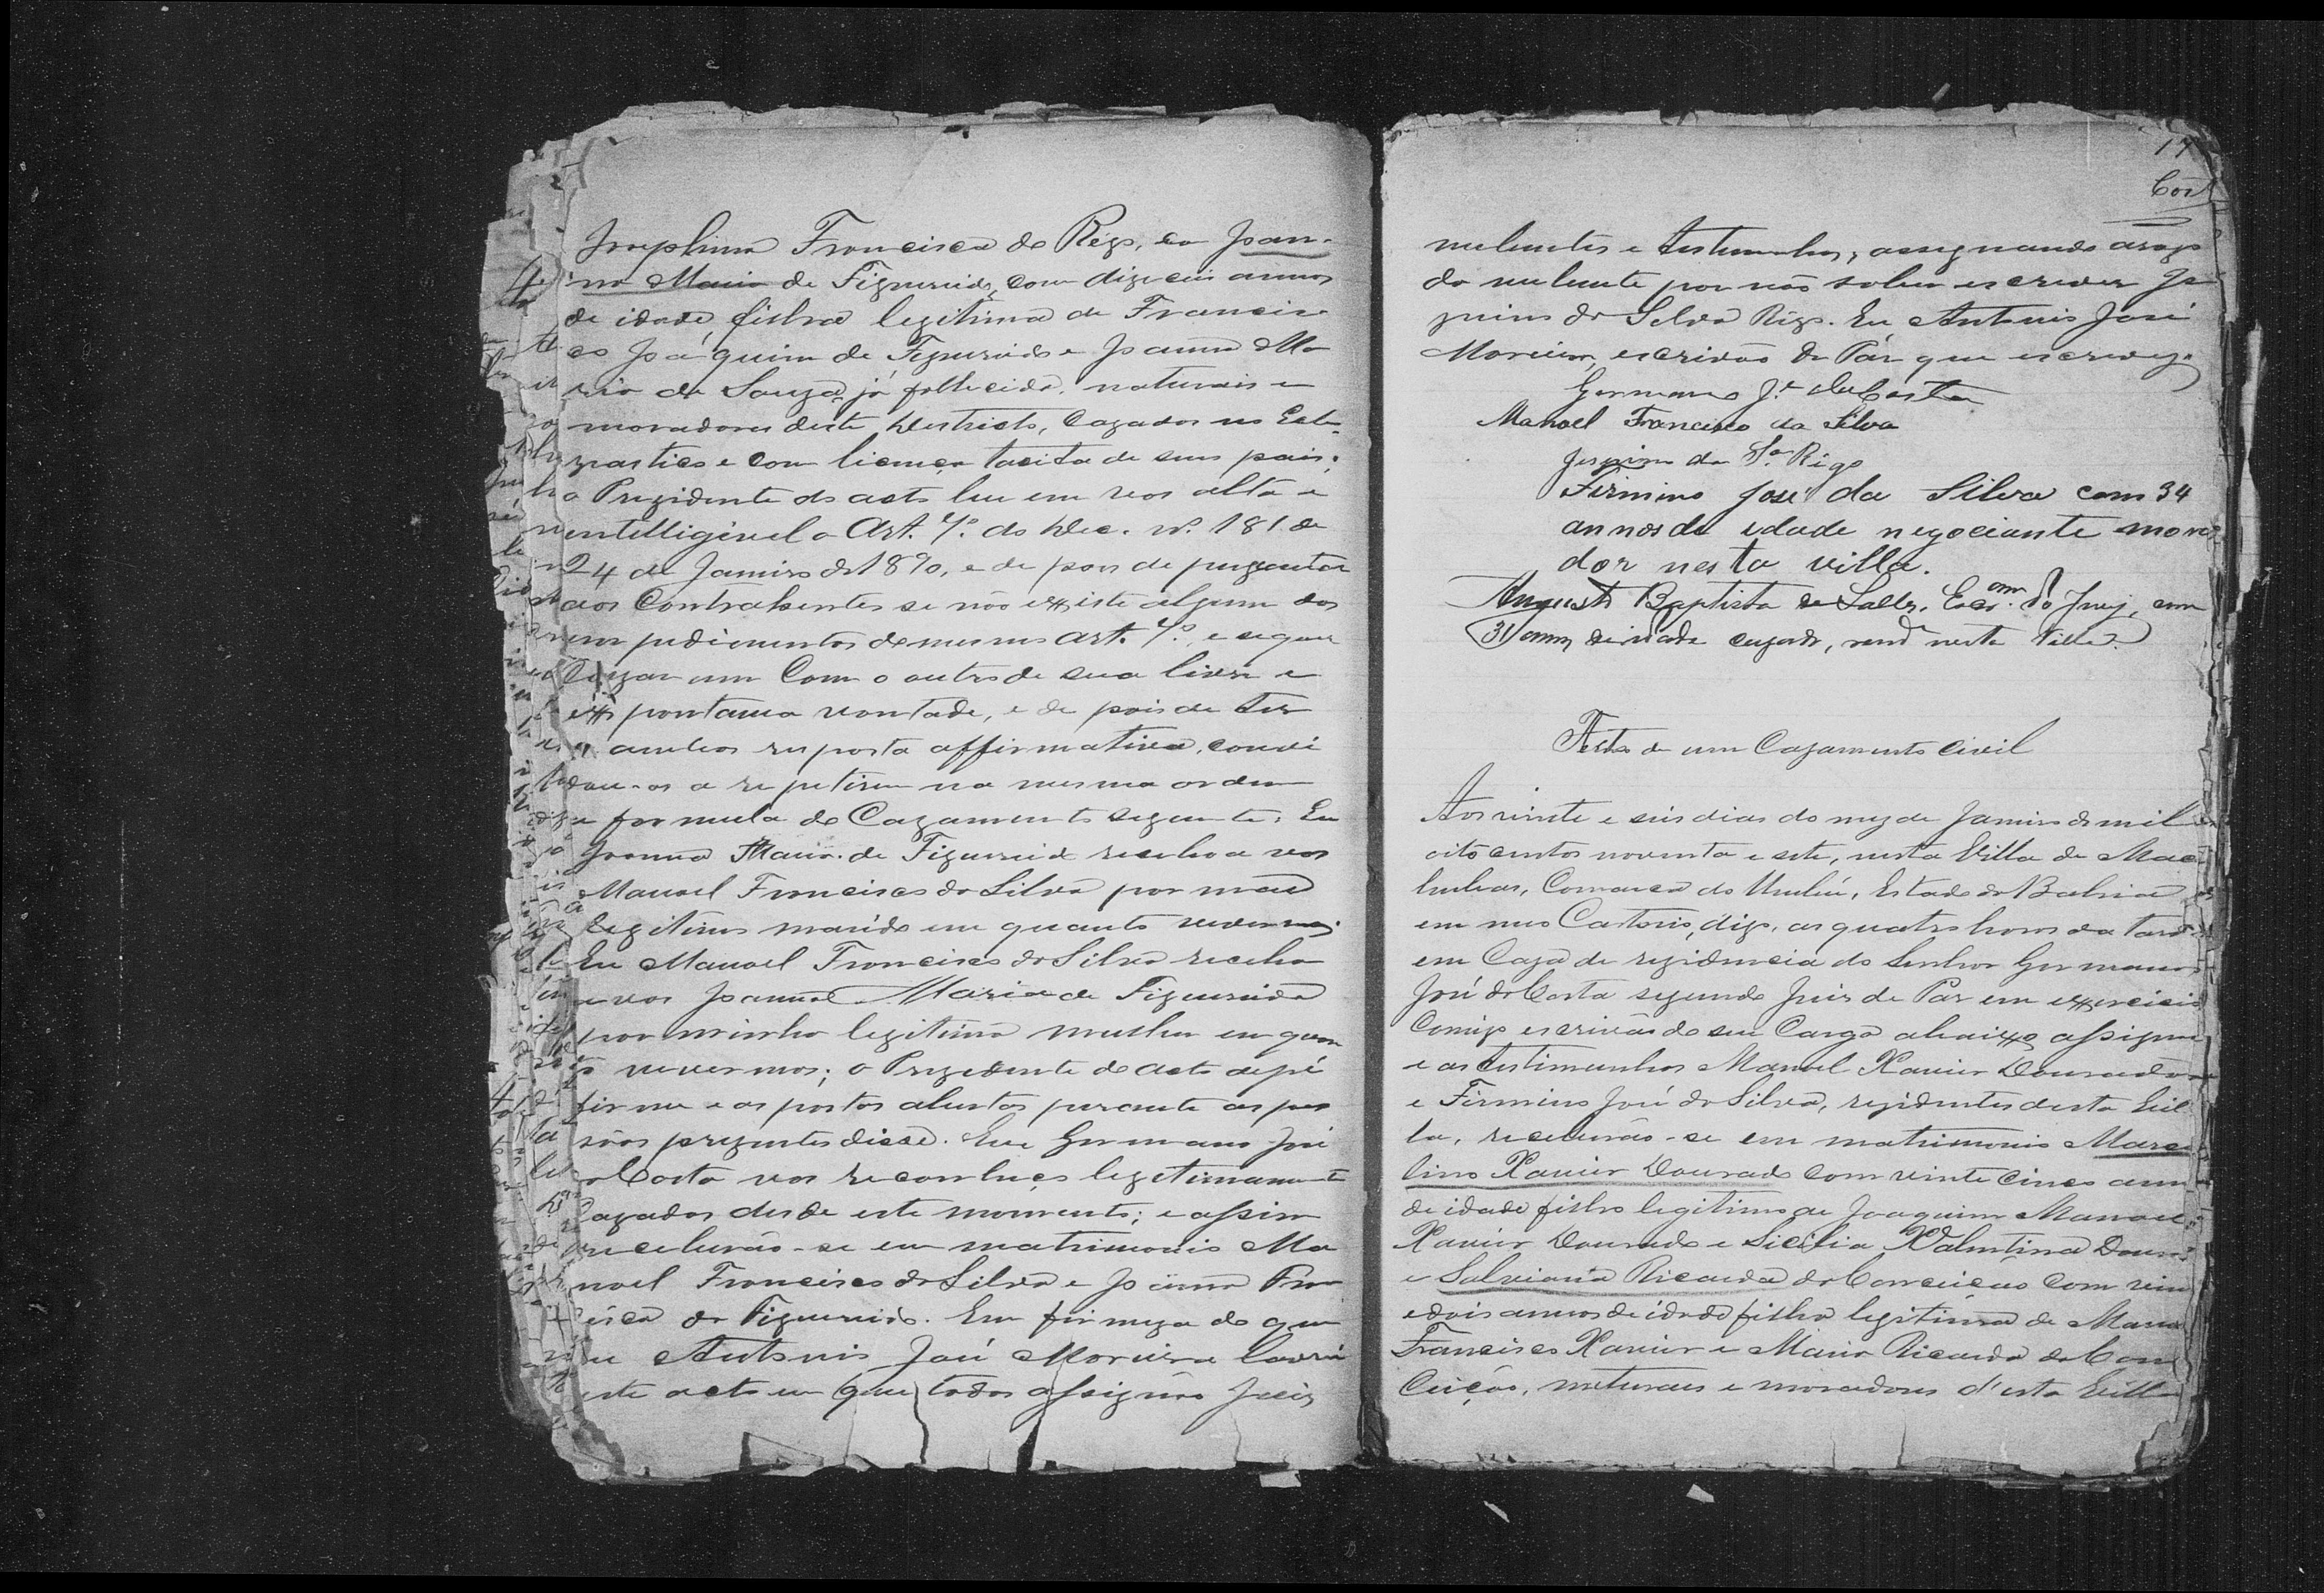 Josephina Francisca do Rego, com Joan-
na Maria de Figueredo, com dizeceis annos
de idade, filha legitima de Francis-
co Joaquim de Figueredo e Joanna Ma
ria de Souza, já fallecida, naturais e
moradores deste Destricto, Cazados no Ecle-
ziastico e com licença tacita de seus pais;
o Prezidente do acto leu em vos alta e
entelligivel o Art. 7º. do Dec. nº. 181 de
24 de Janeiro de 1890, e de pois de preguntar
aos Contrahentes se não existe algum dos
empedimentos do mesmo art. 7º, e se quer
Cazar um Com o outro de sua livre e
expontania vontade, e de pois de ter
ambos reposta affirmativa, convi
dou-os a repetirem na mesma ordem
a formula do Cazamento seguinte: Eu
Joanna Maria de Figueredo recebo a vos
Manoel Francisco da Silva por meu
legitimo marido em quanto vivermos;
Eu Manoel Francisco da Silva recebo
a vos Joanna Maria de Figueredo
por minha legitima mulher em quan
to vivermos; o Prezidente do acto de pé
firme e as portas abertas perante as pes
sôas prezentes disse. Eu Germano José
da Costa vos reconheço legitimamente
Cazados desde este momento; e assim
receberão-se em matrimonio Ma
noel Francisco da Silva e Joanna Fran
cisca de Figueredo. Em firmeza do que
Eu Antonio José Moreira lavrei
este acto em que todos assignão Juiz
17
Cos
nubentes e testemunhas, assignando arogo
da nubente por não saber escrever Je
ronimo da Silva Rego. Eu Antonio José
Moreira, escrivão de Páz que escrevy.
Germano Jé. da Costa
Manoel Francisco da Silva
Jeronimo da Sª. Rego
Firmino José da Silva com 34
annos de edade negociante mora
dor nesta villa.
Augusto Baptista de Salles, Escram. do Juiz, com
31 annos de idade cazado, resde nesta Villa.
Acto de um Cazamento Civil
Aos vinte e seis dias do mez de Janeiro de mil
oitocentos noventa e sete, nesta Villa de Mac
hubas, Comarca do Urubú, Estado da Bahia
em meo Cartorio, digo, as quatro horas da tard
em Caza de rezidencia do Senhor Germano
José da Costa segundo Juis de Paz em exercicio
Comigo escrivão de seu Cargo abaixo assigna
e as testimunhas Manoel Xavier Dourado
e Firmino José da Silva, rezidentes desta Vil
la, receberão-se em matrimonio Marce
lino Xavier Dourado com vinte cinco ann
de idade filho legitimo de Joaquim Manoel
Xavier Dourado e Sicilia Valentina Doura
e Salviana Ricarda da Conceição com vin
e dois annos de idade filha legitima de Mano
Francisco Xavier e Maria Ricarda da Con
Ceição, naturaes e moradores d'esta Villa